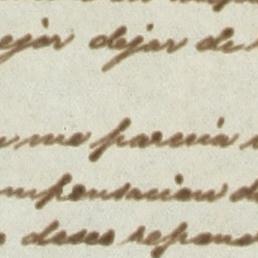 ejor dejar de
me parecia
mpensacion d
deseo repone